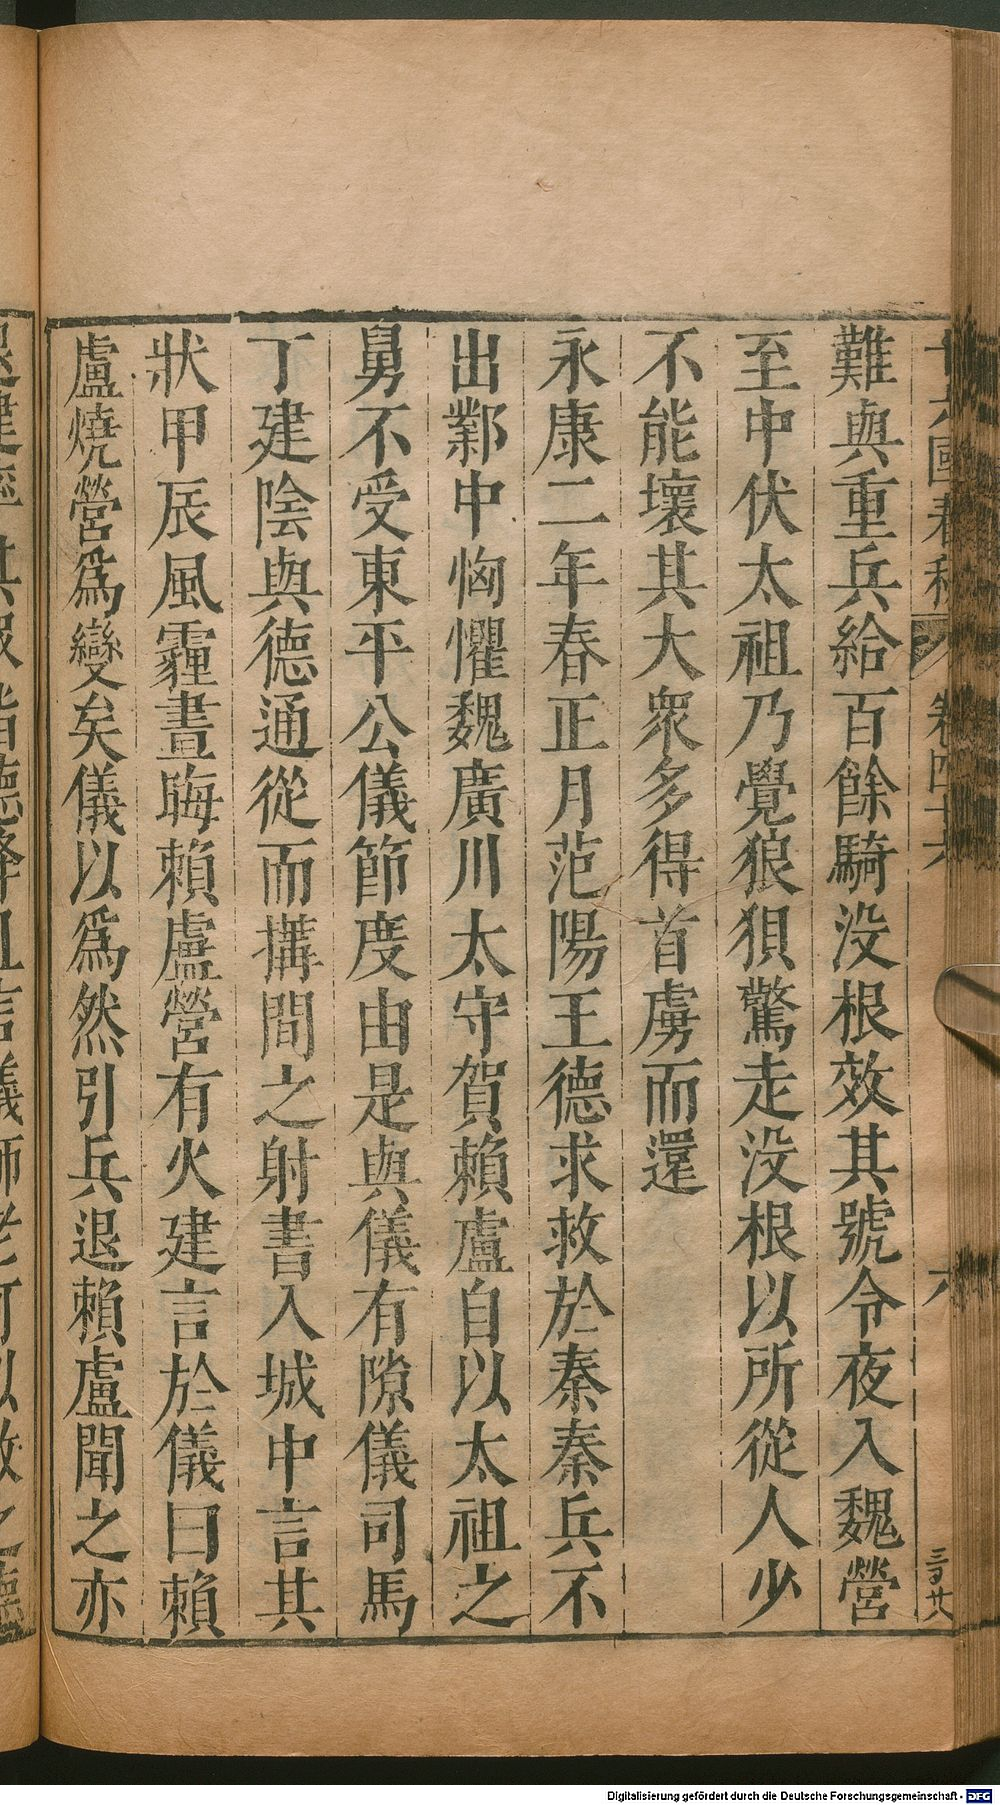 十六國春秋 卷四十六 六
難與重兵給百餘騎没根效其號令夜入魏營
至中伏太祖乃覺狼狽驚走没根以所從人少
不能壞其大衆多得首虜而還
永康二年春正月范陽王德求救於秦秦兵不
出鄴中恟懼魏廣川太守賀賴盧自以太祖之
舅不受東平公儀節度由是與儀有隙儀司馬
丁建陰與德通從而搆間之射書入城中言其
狀甲辰風霾晝晦賴盧營有火建言於儀曰賴
盧燒營爲變矣儀以爲然引兵退賴盧聞之亦
Digitalisierung gefördert durch die Deutsche Forschungsgemeinschaft - DFG